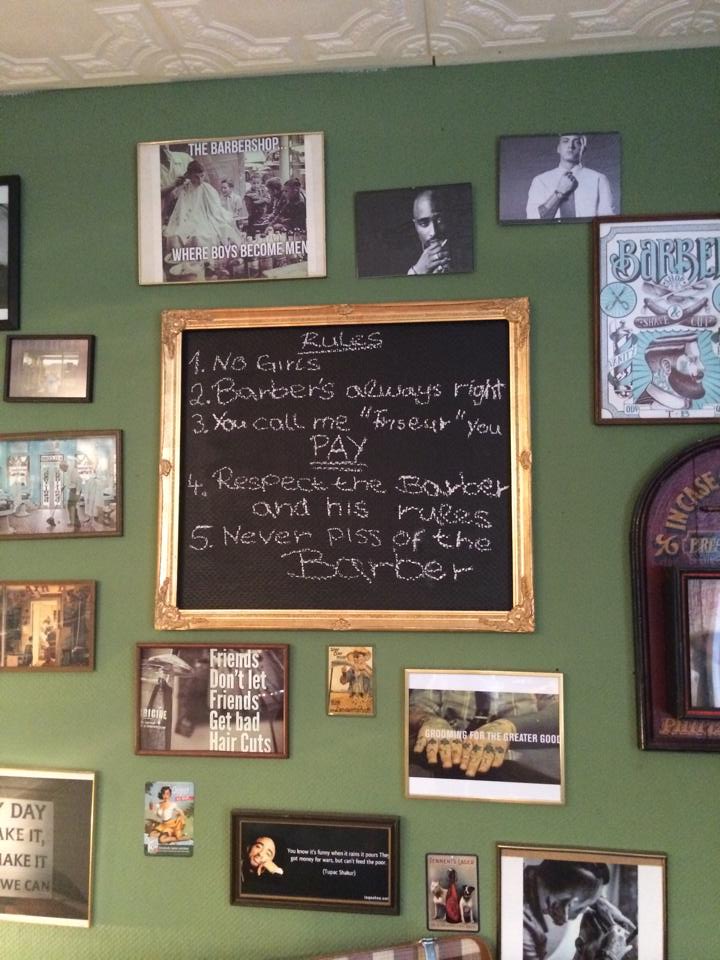 THE BARBERSHOP...
WHERE BOYS BECOME MEN
BARBER
SHAVE & CUT
Rules
1. No Girls
2. Barber's always right
3. You call me "Friseur" you
PAY
4. Respect the Barber
and his rules
5. Never piss of the
Barber
IN CASE
Friends
Don't let
Friends
Get bad
Hair Cuts
GROOMING FOR THE GREATER GOOD
Y DAY
AKE IT,
MAKE IT
WE CAN
You know it's funny when it rains it pours They
got money for wars, but can't feed the poor.
(Tupac Shakur)
TENNENT'S LAGER